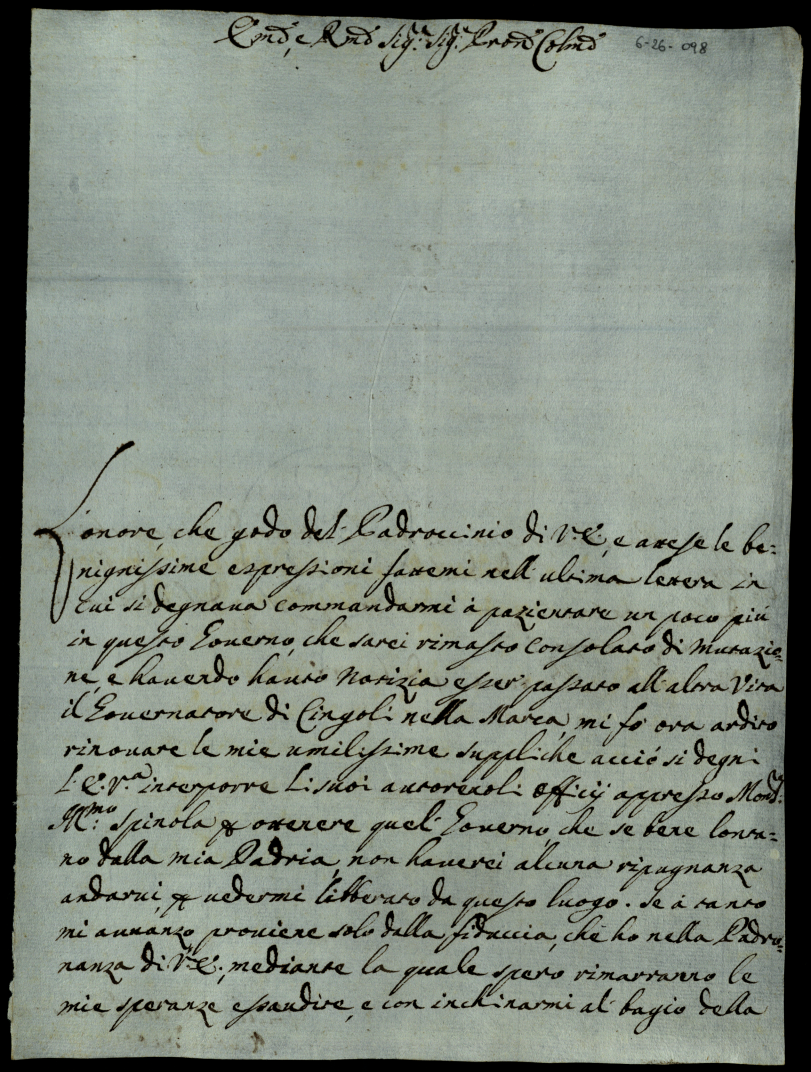 Emo, e Rmo Sig.r Sig.r Pron Colmo
6-26-098
L'onore, che godo del Padroccinio di V. E., e attese le be-
nignissime espressioni fattemi nell' ultima lettera in
cui si degnava commandarmi à pazientare un poco più
in questo Governo, che sarei rimasto consolato di mutazio-
ne, e havendo hauto Notizia esser passato all' altra Vita
il Governatore di Cingoli nella Marca, mi fò ora ardito
rinovare le mie umilissime suppliche acciò si degni
l'E. V.ra interporre li suoi autorevoli officij appresso Mons.r
Ill.mo Spinola p ottenere quel Governo, che se bene lonta-
no dalla mia Padria, non haverei alcuna ripugnanza
andarvi p vedermi libberato da questo luogo. Se à tanto
mi avvanzo proviene solo dalla fiduccia, che hò nella Padro-
nanza di V. E., mediante la quale spero rimarranno le
mie speranze essaudite, e con inchinarmi al bagio della